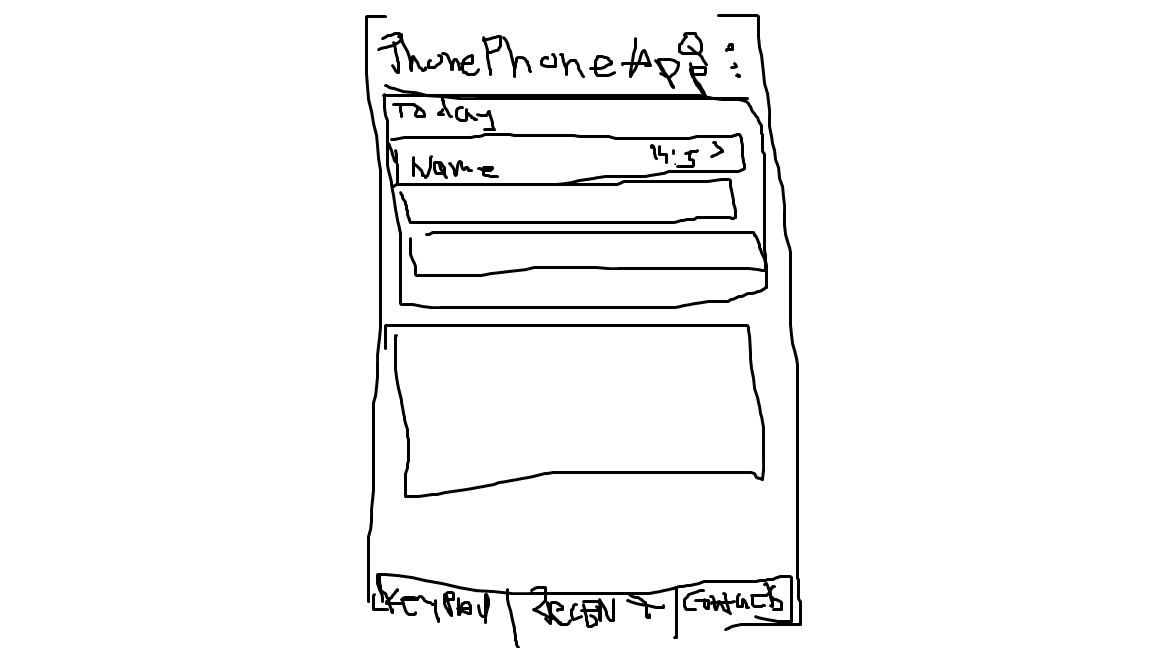 Phone Phone App
Today
Name 14:5 >
Keypad Recent Contacts